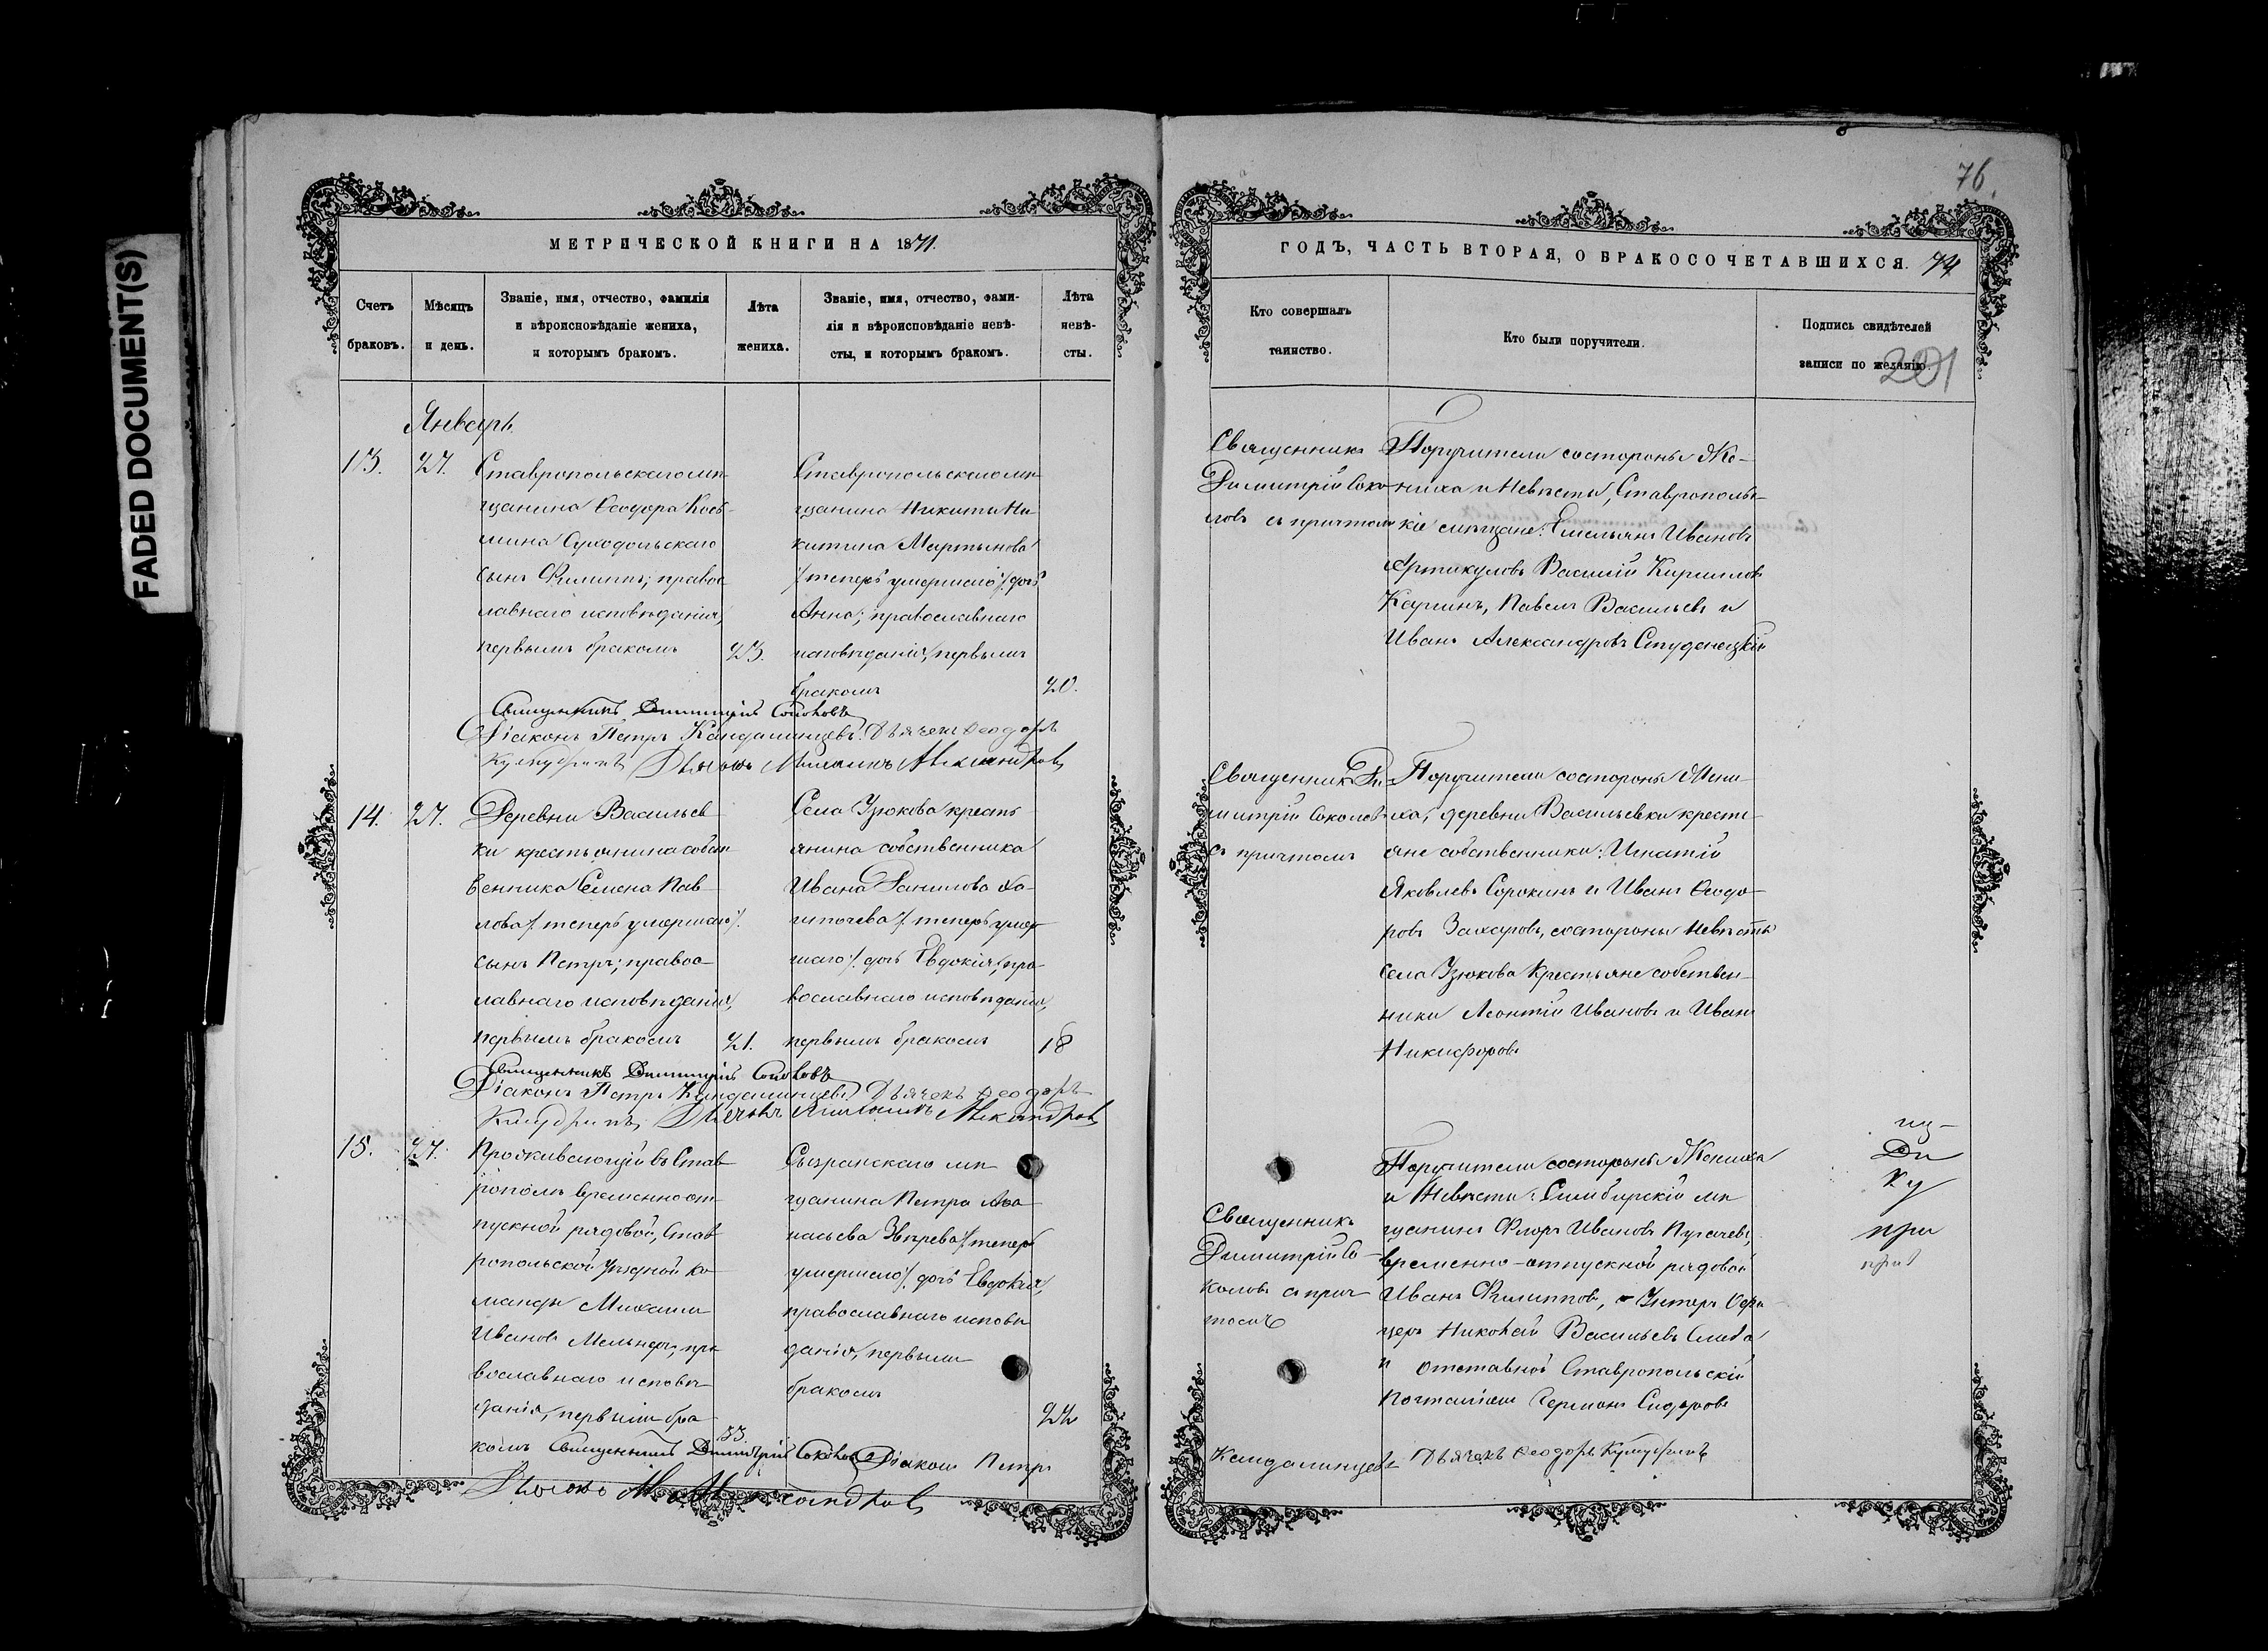 FADED DOCUMENT(S)
МЕТРИЧЕСКОЙ КНИГИ НА 1871.
Счетъ браковъ.
Мѣсяцъ и день.
Званіе, имя, отчество, фамилія
и вѣроисповѣданіе жениха,
и которымъ бракомъ.
Лѣта жениха.
Званіе, имя, отчество, фами-
лія и вѣроисповѣданіе невѣ-
сты, и которымъ бракомъ.
Лѣта невѣ-
сты.
Январь
13. 27.
Ставропольскаго мѣ-
щанина Ѳеодора Козь-
мина Суходольскаго
сынъ Филиппъ; правос
лавнаго исповѣданія,
первымъ бракомъ
23.
Ставропольскаго мѣ
щанина Никиты Ни
китина Мартынова
/теперь умершаго/ дочь
Анна; православнаго
исповѣданія, первымъ
бракомъ
20.
Священникъ Димитрій Соколовъ
Діаконъ Петръ Кандалинцевъ. Дьячекъ Ѳеодоръ
Александровъ
14. 27.
Деревни Васильев
ки крестьянина собст
венника Семена Пав-
лова /теперь умершаго/.
сынъ Петръ; правос-
лавнаго исповѣданія,
первымъ бракомъ
21.
Села Узюкова кресть
янина собственника
Ивана Данилова
/теперь умер
шаго/. дочь Евдокія; пра-
вославнаго исповѣданія,
первымъ бракомъ
18
Священникъ Димитрій Соколовъ
Діаконъ Петръ Кандалинцевъ Дьячекъ Ѳеодоръ
Александровъ
15. 27.
Проживающій въ Став
рополѣ временно-от-
пускной рядовой, Став
ропольской Уѣздной Ко
манды Михаилъ
Ивановъ Мельнеръ, пра
вославнаго исповѣ-
данія, первымъ бра-
комъ
33.
Сызранскаго мѣ
щанина Петра Аѳа-
насьева Звѣрева /теперь
умершаго/. дочь Евдокія,
православнаго исповѣ
данія, первымъ
бракомъ
22
Священникъ Димитрій Соколовъ Діаконъ Петръ
Александровъ
76.
ГОДЪ, ЧАСТЬ ВТОРАЯ, О БРАКОСОЧЕТАВШИХСЯ. 74
Кто совершалъ
таинство.
Кто были поручители.
Подпись свидѣтелей
записи по желанію.
201
Священникъ
Димитрій Соко
ловъ съ причтомъ
Поручители состороны Же-
ниха и Невѣсты, Ставрополь-
кіе мѣщане: Емельянъ Ивановъ
Артикуловъ Василій Кирилловъ
Карпинъ, Павелъ Васильевъ и
Иванъ Александровъ Студенецкій
Священникъ Ди
митрій Соколовъ
съ причтомъ
Поручители состороны Жени
ха, деревни Васильевки кресть-
яне собственники: Игнатій
Яковлевъ Сорокинъ и Иванъ Ѳеодо-
ровъ Захаровъ, состороны Невѣсты
села Узюкова Крестьяне собствен-
ники Леонтій Ивановъ и Иванъ
Никифоровъ
Священникъ
Димитрій Со-
коловъ съ прич-
томъ
Поручители состороны Жениха
и Невѣсты: Симбирскій мѣ
щанинъ Флоръ Ивановъ Пугачевъ,
временно-отпускной рядовой
Иванъ Филипповъ, Унтеръ Офи
церъ Николай Васильевъ
и отставной Ставропольскій
Почталіонъ Германъ Сидоровъ
Ди
Ку
при
Кандалинцевъ Дьячекъ Ѳеодоръ